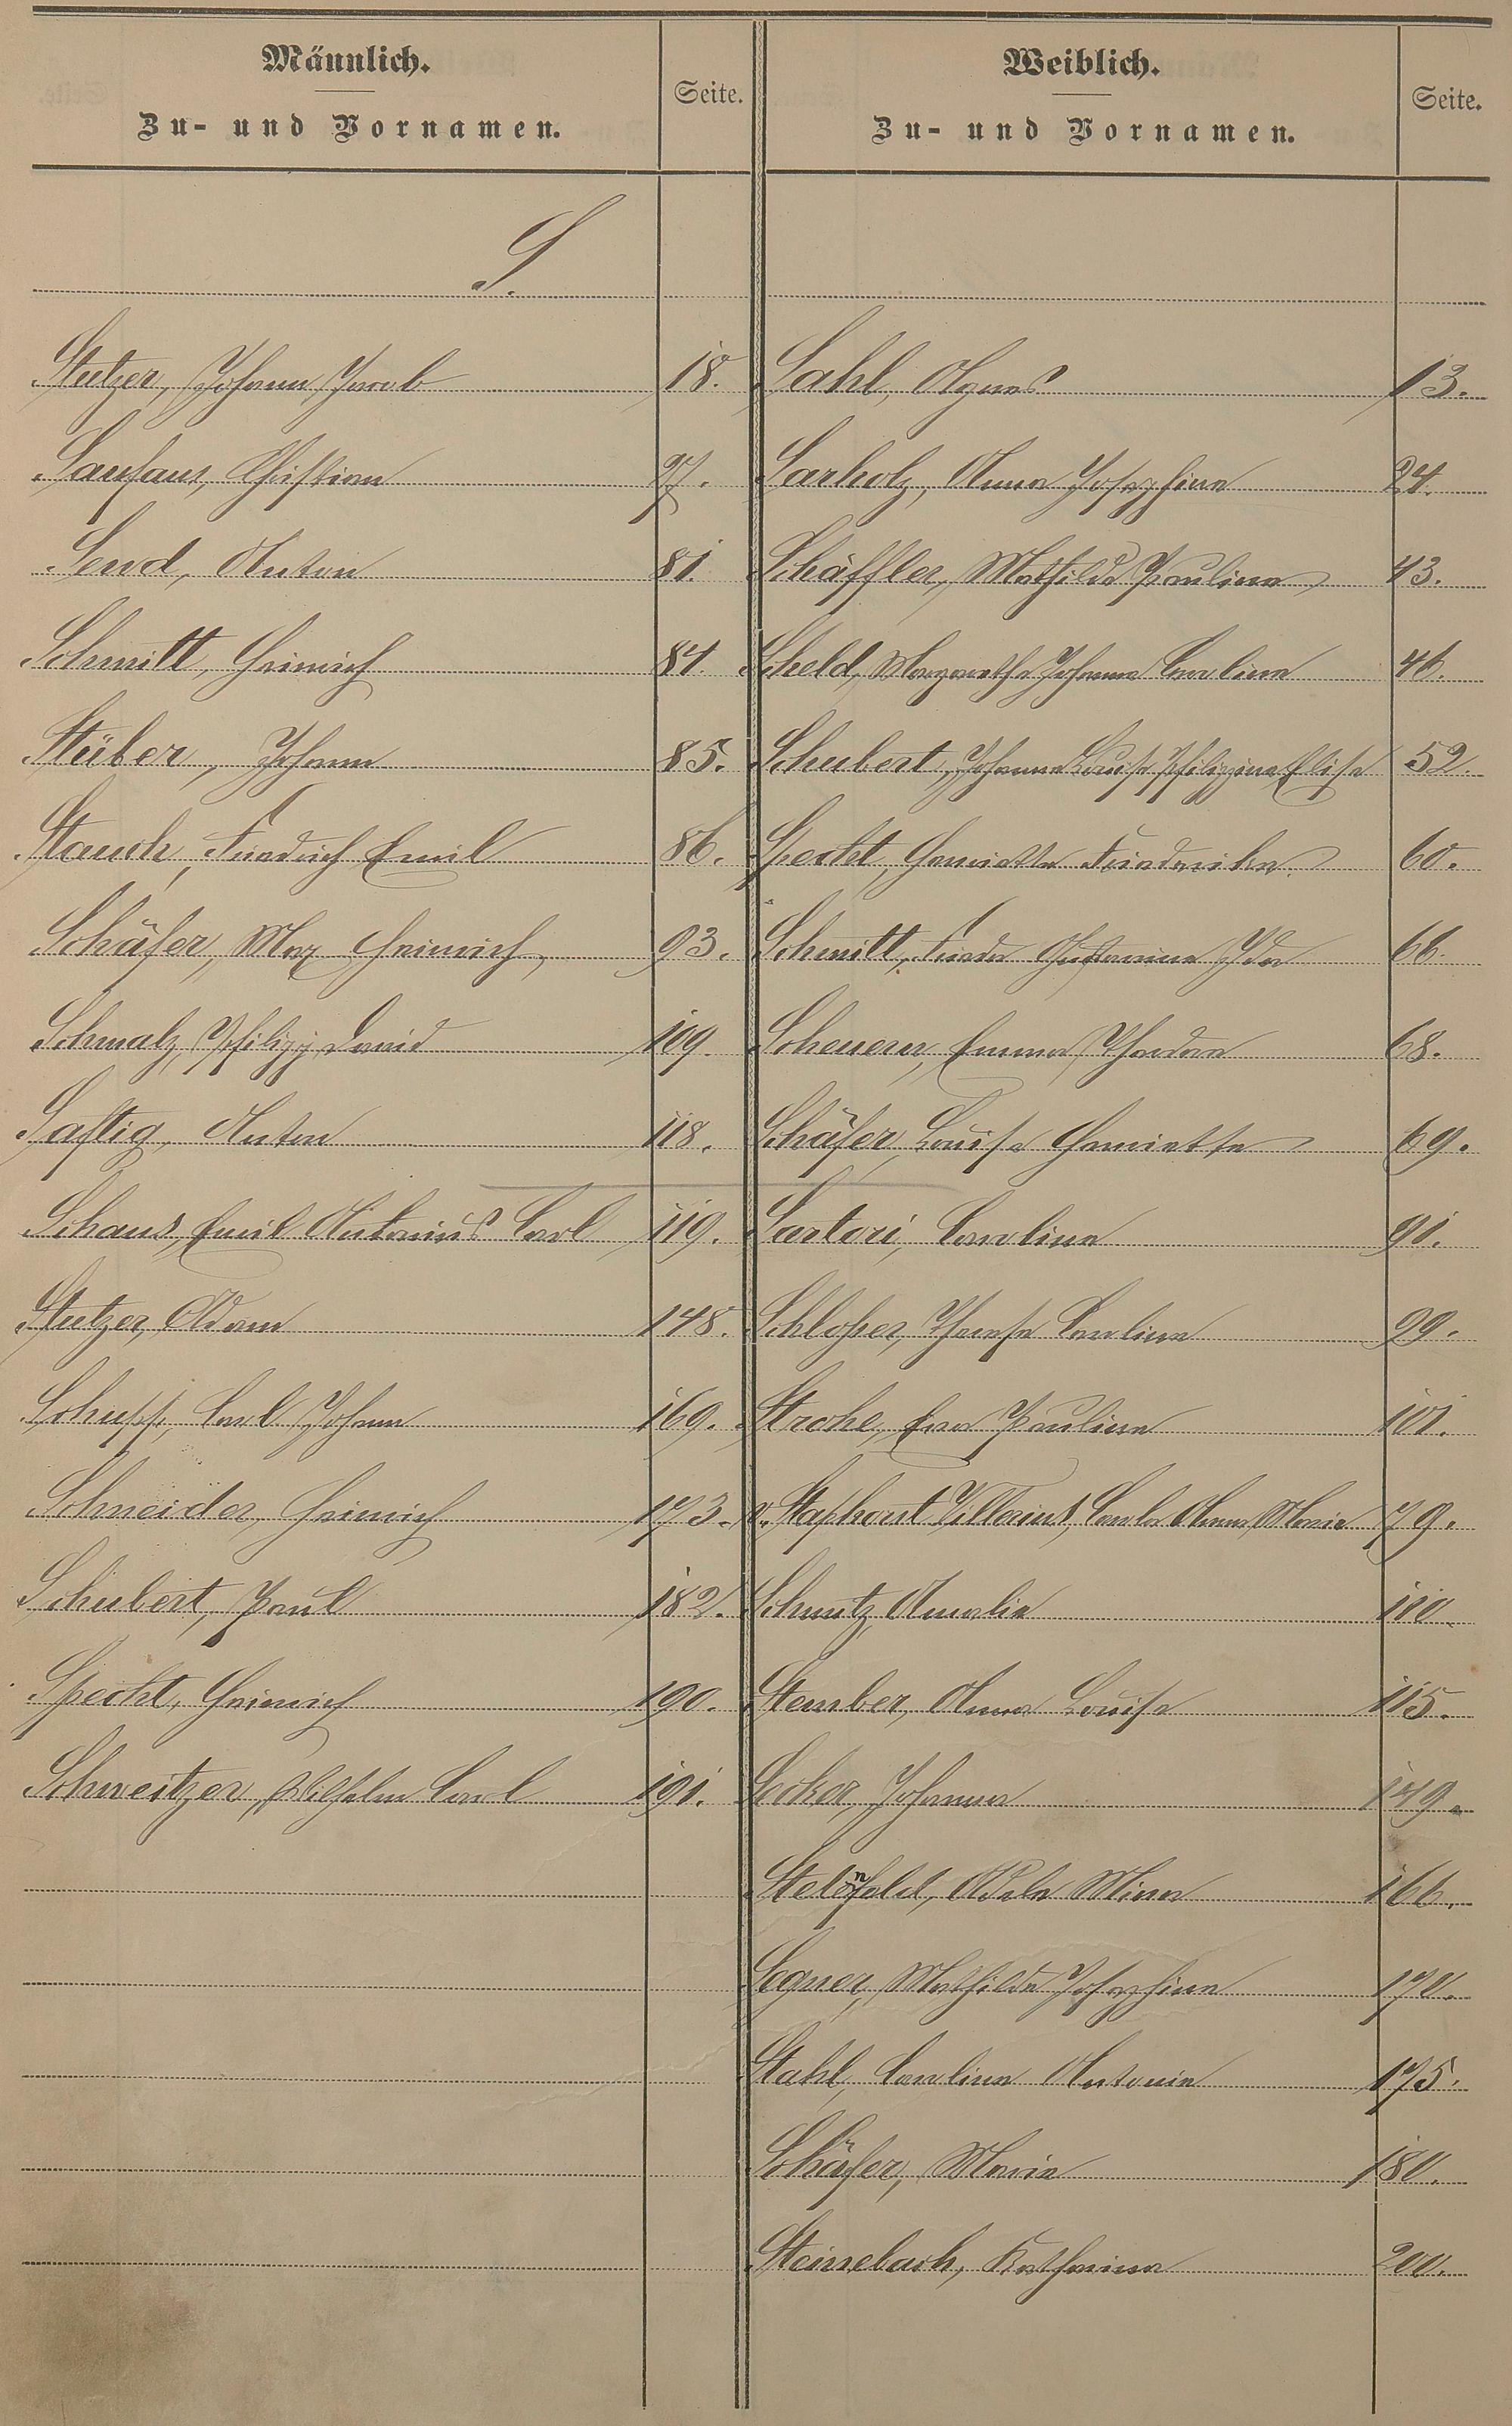 Männlich.
Zu- und Vornamen.
Seite.
Weiblich.
Zu- und Vornamen.
Seite.
S.
Stutzer, Johann Jacob 18. Sahl, Agnes 13.
Saufaus, Christian 27. Sarholz, Anna Josephine 24.
Send, Anton 81. Schäffler, Mathilde Pauline 43.
Schmitt, Heinrich 84. Scheld, Margarethe Johanna Caroline 46.
Stüber, Johann 85. Schubert, Johanna Louise Philippine Elise 52.
Stauch, Friedrich Emil 86. Specht, Henriette Friederike 60.
Schäfer, Max Heinrich 93. Schmitt, Frieda Ida 66.
Schmalz, Philipp David 109. Scheuern, Emma Theodora 68.
Saftig, Anton 118. Schäfer, Louise Henriette 69.
Schaus, Emil Antonius Carl 119. Sartori, Caroline 91.
Stutzer, Adam 148. Schloßer, Therese Caroline 99.
Schupp, Carl Johann 169. Strohe, Eva Pauline 101.
Schneider, Heinrich 173. v. Staphorst Carla Anna Maria 79.
Schubert, Paul 182. Schmitz, Amalie 110.
Specht, Heinrich 190. Stember, Anna Louise 115.
Schweitzer, Wilhelm Carl 191. Secker, Johanna 149.
Adele Mina 166.
Segner, Mathilde Josephine 170.
Stahl, Caroline Antonie 175.
Schäfer, Maria 180.
Steinebach, Katharina 200.